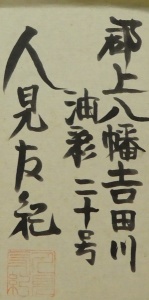 郡上八幡吉田川
油彩 二十号
人見友紀